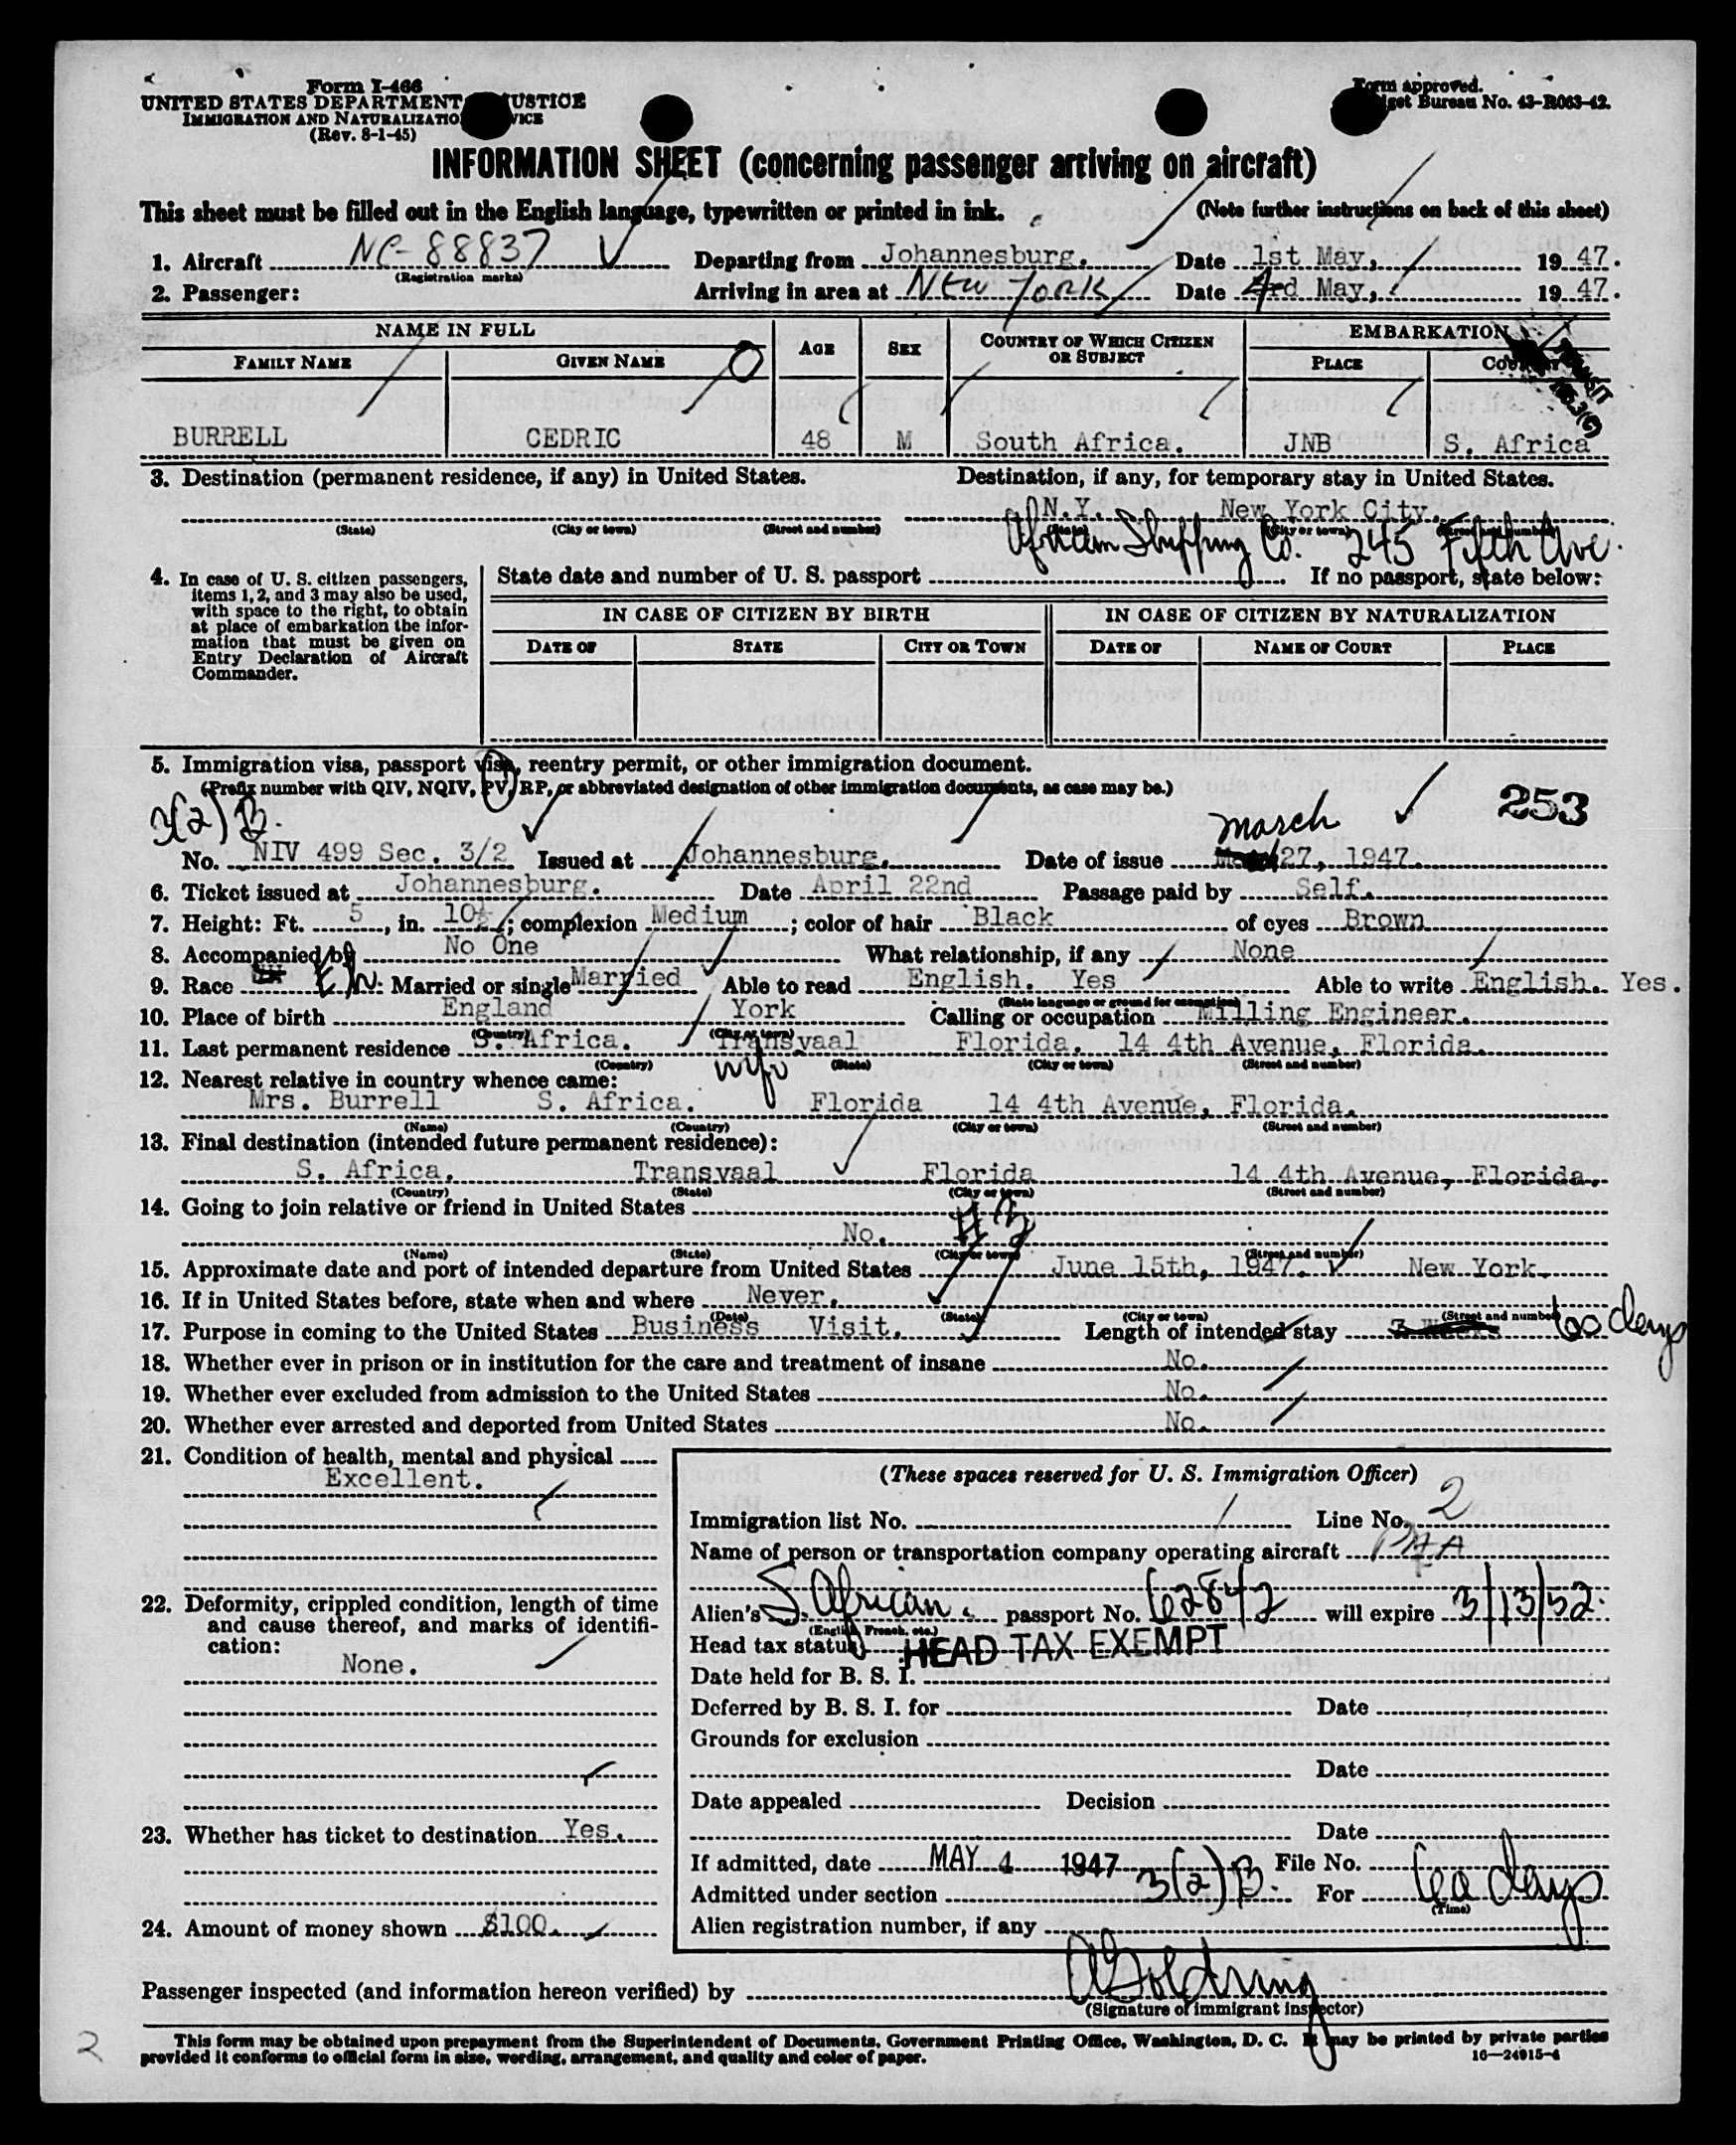 Form I-466
UNITED STATES DEPARTMENT USTICE
IMMIGRATION AND NATURALIZATIO VICE
(Rev. 8-1-45)
Form approved.
get Bureau No. 43-R063-42.
INFORMATION SHEET (concerning passenger arriving on aircraft)
This sheet must be filled out in the English language, typewritten or printed in ink. (Note further instructions on back of this sheet)
1. Aircraft NC-88837 Departing from Johannesburg. Date 1st May, 19 47.
(Registration marks)
2. Passenger: Arriving in area at NEW YORK Date 4rd May, 19 47.
NAME IN FULL AGE SEX COUNTRY OF WHICH CITIZEN OR SUBJECT EMBARKATION
FAMILY NAME GIVEN NAME PLACE
BURRELL CEDRIC 48 M South Africa. JNB S. Africa
3. Destination (permanent residence, if any) in United States. Destination, if any, for temporary stay in United States.
N.Y. New York City.
(State) (City or town) (Street and number) (State) (City or town) (Street and number)
African Shipping Co. 245 Fifth Ave.
4. In case of U. S. citizen passengers, items 1, 2, and 3 may also be used, with space to the right, to obtain at place of embarkation the information that must be given on Entry Declaration of Aircraft Commander.
State date and number of U. S. passport If no passport, state below:
IN CASE OF CITIZEN BY BIRTH IN CASE OF CITIZEN BY NATURALIZATION
DATE OF STATE CITY OR TOWN DATE OF NAME OF COURT PLACE
5. Immigration visa, passport visa, reentry permit, or other immigration document.
(Prefix number with QIV, NQIV, PV, RP, or abbreviated designation of other immigration documents, as case may be.)
3(2) B. March 253
No. NIV 499 Sec. 3/2 Issued at Johannesburg. Date of issue 27, 1947.
6. Ticket issued at Johannesburg. Date April 22nd Passage paid by Self.
7. Height: Ft. 5, in. 10½; complexion Medium; color of hair Black of eyes Brown
8. Accompanied by No One What relationship, if any None
9. Race : Married or single Married Able to read English. Yes Able to write English. Yes.
(State language or ground for exemption)
10. Place of birth England York Calling or occupation Milling Engineer.
(Country) (City or town)
11. Last permanent residence S. Africa. Transvaal Florida. 14 4th Avenue, Florida.
(Country) (State) (City or town) (Street and number)
12. Nearest relative in country whence came: wife
Mrs. Burrell S. Africa. Florida 14 4th Avenue, Florida.
(Name) (Country) (City or town) (Street and number)
13. Final destination (intended future permanent residence):
S. Africa. Transvaal Florida 14 4th Avenue, Florida.
(Country) (State) (City or town) (Street and number)
14. Going to join relative or friend in United States
No.
(Name) (State) (City or town) (Street and number)
15. Approximate date and port of intended departure from United States June 15th, 1947. New York.
16. If in United States before, state when and where Never.
(Date) (State) (City or town) (Street and number)
17. Purpose in coming to the United States Business Visit. Length of intended stay 3 Weeks 60 days
18. Whether ever in prison or in institution for the care and treatment of insane No.
19. Whether ever excluded from admission to the United States No.
20. Whether ever arrested and deported from United States No.
21. Condition of health, mental and physical
Excellent.
22. Deformity, crippled condition, length of time and cause thereof, and marks of identification:
None.
23. Whether has ticket to destination Yes.
24. Amount of money shown $100.
(These spaces reserved for U. S. Immigration Officer)
Immigration list No. Line No. 2
Name of person or transportation company operating aircraft PAA
Alien's S. African. passport No. 62842 will expire 3/13/52.
(English, French, etc.)
Head tax status HEAD TAX EXEMPT
Date held for B. S. I.
Deferred by B. S. I. for Date
Grounds for exclusion
Date
Date appealed Decision
Date
If admitted, date MAY 4 1947 File No.
Admitted under section 3(2) B. For 60 days
(Time)
Alien registration number, if any
Passenger inspected (and information hereon verified) by
(Signature of immigrant inspector)
2
This form may be obtained upon prepayment from the Superintendent of Documents, Government Printing Office, Washington, D. C. It may be printed by private parties
provided it conforms to official form in size, wording, arrangement, and quality and color of paper. 16—24915-4